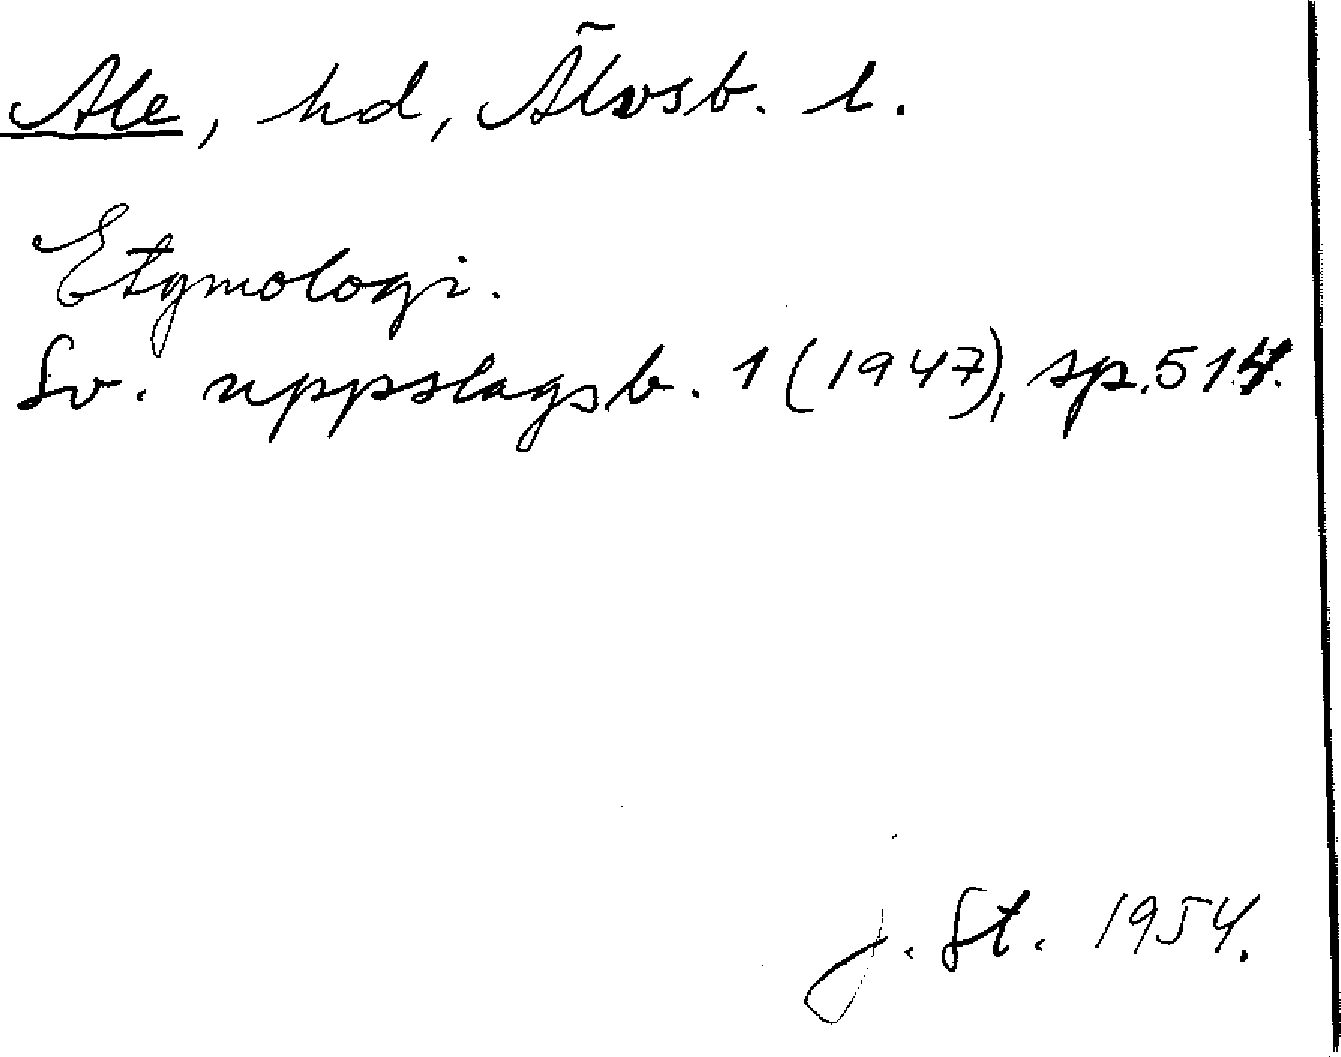 Ale, hd, Älvsb. l.
Etymologi.
Sv. uppslagsb. 1 (1947), sp. 514.
J. St. 1954.